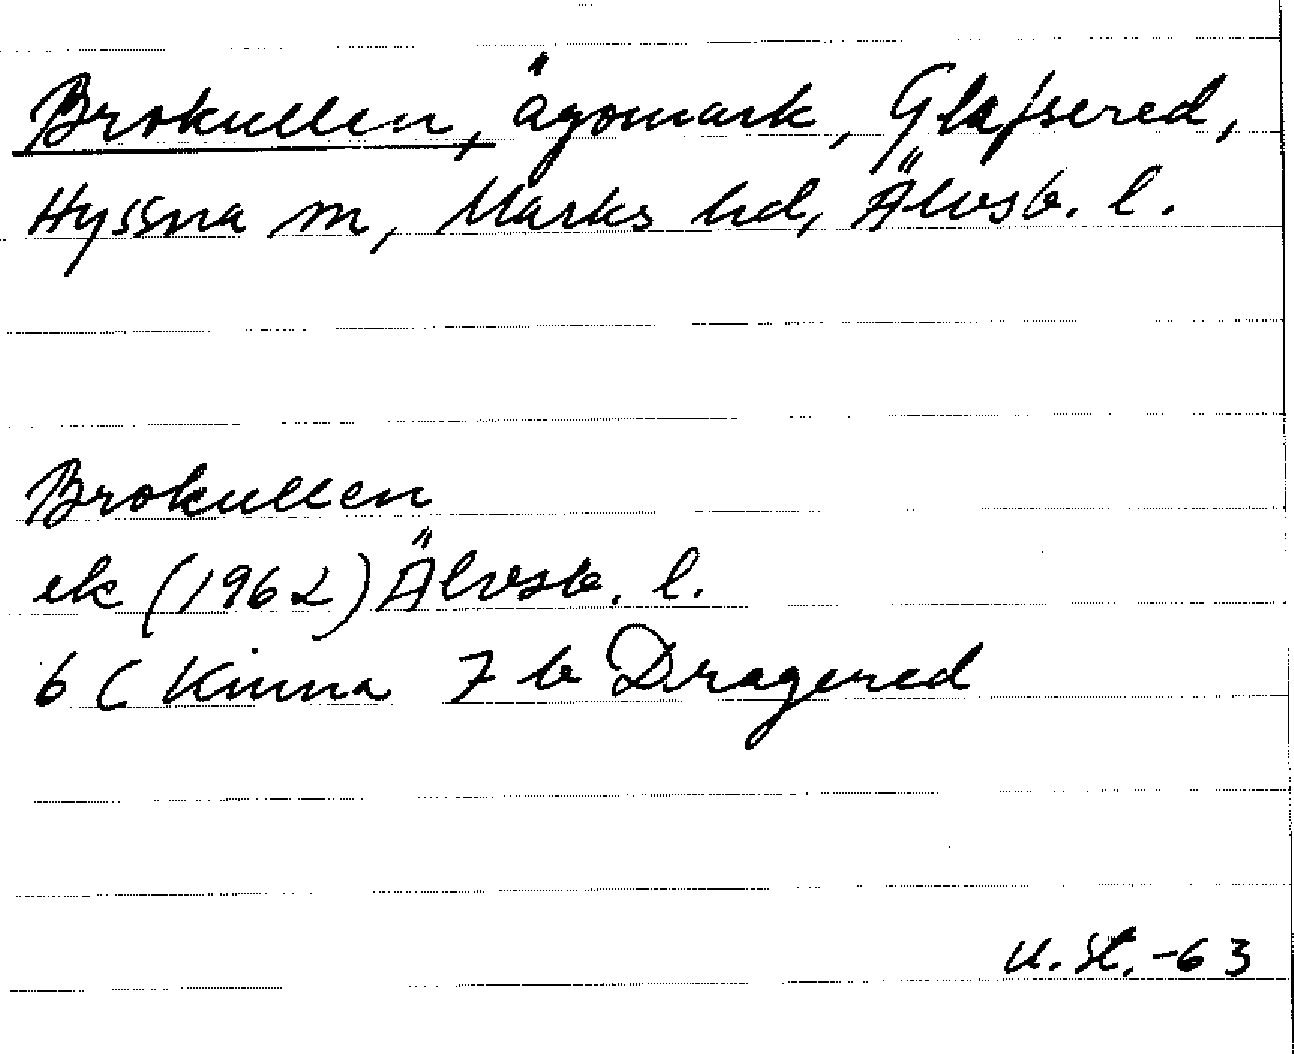 Brokullen, ägomark, Glafsered,
Hyssna sn, Marks hd, Älvsb. l.
Brokullen
ek (1962) Älvsb. l.
6 C Kinna 7 b Dragered
u. St. -63